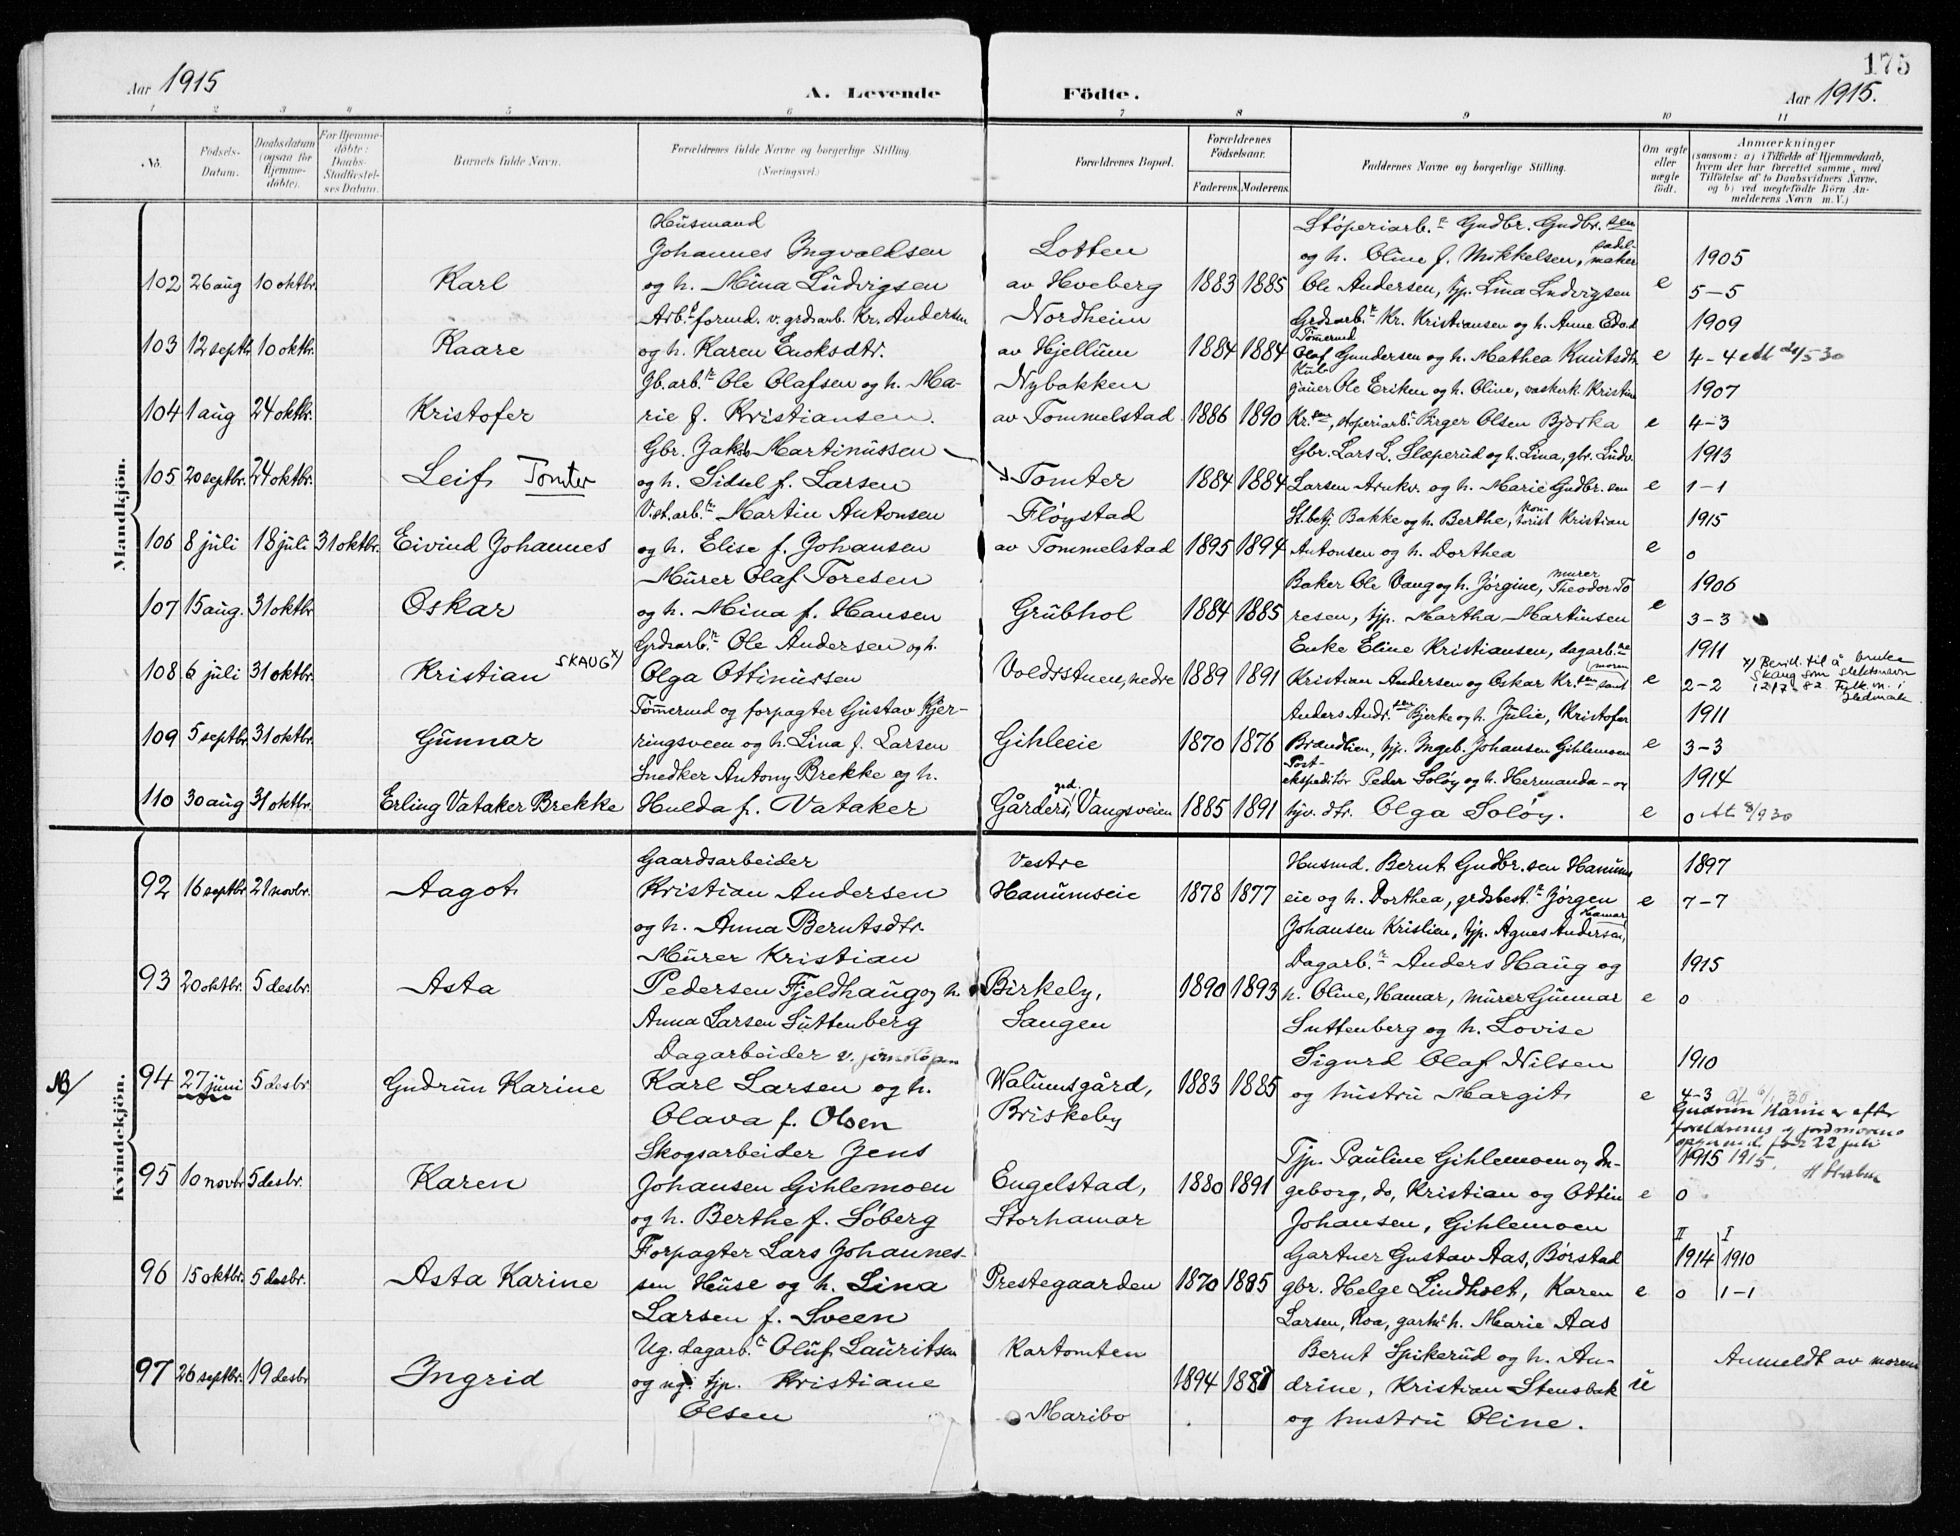 175
Aar 1915
A. Levende
Födte.
Aar 1915.
1 2 3 4 5 6 7 8 9 10 11
No.
Födsels-Datum.
Daabsdatum (ogsaa for Hjemme-döbte).
For Hjemme-döbte: Daabs-Stadfæstelses Datum.
Barnets fulde Navn.
Forældrenes fulde Navne og borgerlige Stilling. (Næringsvei.)
Forældrenes Bopæl.
Forældrenes Födselsaar.
Faderens. Moderens.
Faddernes Navne og borgerlige Stilling.
Om ægte eller uægte födt.
Anmærkninger
(saasom: a) i Tilfælde af Hjemmedaab,
hvem der har forrettet samme, med
Tilföielse af to Daabsvidners Navne,
og b) ved uægtefödte Börn An-
melderens Navn m. V.)
Mandkjön.
Husmand
Johannes Ingvaldsen
102 26 aug 10 oktbr. Karl og h. Mina Ludvigsen
Lotten
av Hveberg 1883 1885
Støperiarb.r Gudbr. Gudbr.sen
og h. Oline f. Mikkelsen, sadelmaker
Ole Andersen, tjp. Lina Ludvigsen e
1905
5–5
Arb.formd. v. grdsarb. Kr. Andersen
103 12 septbr 10 oktbr. Kaare og h. Karen Enoksdtr.
Nordheim
av Hjellum 1884 1884
Grdsarb.r Kr. Kristiansen og h. Anne Edvd
Tømmerud
Olaf Gundersen og h. Mathea Knutsdtr e
1909
4–4
Jb.arb.r Ole Olafsen og h. Ma-
104 1 aug 24 oktbr. Kristofer rie f. Kristiansen.
Nybakken
av Tommelstad 1886 1890
Ole Eriksen og h. Oline, vaskerk. Kristine
Kr.sen, støperiarb.r Birger Olsen Bjørka e
1907
4–3
Gbr. Jakob Martinussen
105 20 septbr. 24 oktbr. Leif Tomter og h. Sidsel f. Larsen
Tomter 1884 1884
Gbr. Lars L. Sleperud og h. Lina, gbr. Ludv.
Larsen Arnkv. og h. Marie Gudbr.sen e
1913
1–1
V.st.arb.r Martin Antonsen
106 8 juli 18 juli 31 oktbr. Eivind Johannes og h. Elise f. Johansen
Fløystad
av Tommelstad 1895 1894
St.betj Bakke og h. Berthe, kontorist Kristian
Antonsen og h. Dorthea e
1915
0
Murer Olaf Toresen
107 15 aug. 31 oktbr Oskar og h. Mina f. Hansen
Grubhol 1884 1885
Baker Ole Vang og h. Jørgine, murer Theodor To
resen, tjp. Martha Martinsen e
1906
3–3
Grdsarb.r Ole Andersen og h.
108 6 juli 31 oktbr. Kristian SKAUG x) Olga Ottinussen
Voldsstuen, nedre 1889 1891
Enke Eline Kristiansen, dagarb.ne
Kristian Andersen og Oskar Kr.sen samt (moren e
1911
2–2
x) Bevil. til å bruke
Skaug som slektsnavn
12/7-82. Fylk.m. i
Hedmark.
Tømmerud og forpagter Gustav Kjer-
109 5 septbr. 31 oktbr. Gunnar ringsveen og h. Lina f. Larsen
Gihleeie 1870 1876
Anders Andr.sen Bjerke og h. Julie, Kristofer
Brandlien, tjp. Ingeb. Johansen Gihlemoen e
1911
3–3
Snedker Antony Brekke og h.
110 30 aug 31 oktbr. Erling Vataker Brekke Hulda f. Vataker
Gårders ged, Vangsveien 1885 1891
Post-
ekspeditør Peder Soløy og h. Hermanda – og
tjv. dtr. Olga Soløy. e
1914
0 At. 8/9 30
Kvindekjön.
Gaardsarbeider
92 16 septbr 21 novbr. Aagot Kristian Andersen
og h. Anna Berntsdtr.
Vestre
Hanumseie 1878 1877
Husmd. Bernt Gudbr.sen Hanums
eie og h. Dorthea, grdsbest.r Jørgen
Johansen Kristlien, tjp. Agnes Andersen, Hamar e
1897
7–7
Murer Kristian
93 20 oktbr. 5 desbr. Asta Pedersen Fjeldhaug og h.
Anna Larsen Luttenberg
Birkely,
Sangen 1890 1893
Dagarb.r Anders Haug og
h. Oline, Hamar, murer Gunnar
Luttenberg og h. Lovise e
1915
0
Dagarbeider v.
NB/ 94 27 juni 5 desbr Gudrun Karine Karl Larsen og h.
Olava f. Olsen
Walumsgård,
Briskeby 1883 1885
Sigurd Olaf Nilsen
og hustru Margit e
1910
4–3 at 6/1 30
Gudrun Karine er efter
foreldrenes og jordmorens
22 juli
1915.
Skogsarbeider Jens
95 10 novbr 5 desbr. Karen Johansen Gihlemoen
og h. Berthe f. Søberg
Engelstad,
Storhamar 1880 1891
Tjp. Pauline Gihlemoen og In-
geborg, do, Kristian og Ottin
Johansen, Gihlemoen e
1915
0
Forpagter Lars Johannes-
96 15 oktbr. 5 desbr. Asta Karine sen Huse og h. Lina
Larsen f. Sveen
Prestegaarden 1870 1885
Gartner Gustav Aas, Børstad
gbr. Helge Lindholt, Karen
Larsen, Roa, gartn.r h. Marie Aas e
II I
1914 1910
0 1–1
Ug. dagarb.r Oluf Lauritsen
97 26 septbr. 19 desbr Ingrid og ug. tjp. Kristiane
Olsen
Kartomten
Maribo 1894 1887
Bernt Spikerud og h. An-
drine, Kristian Stensbak
og hustru Oline. u
Anmeldt av moren